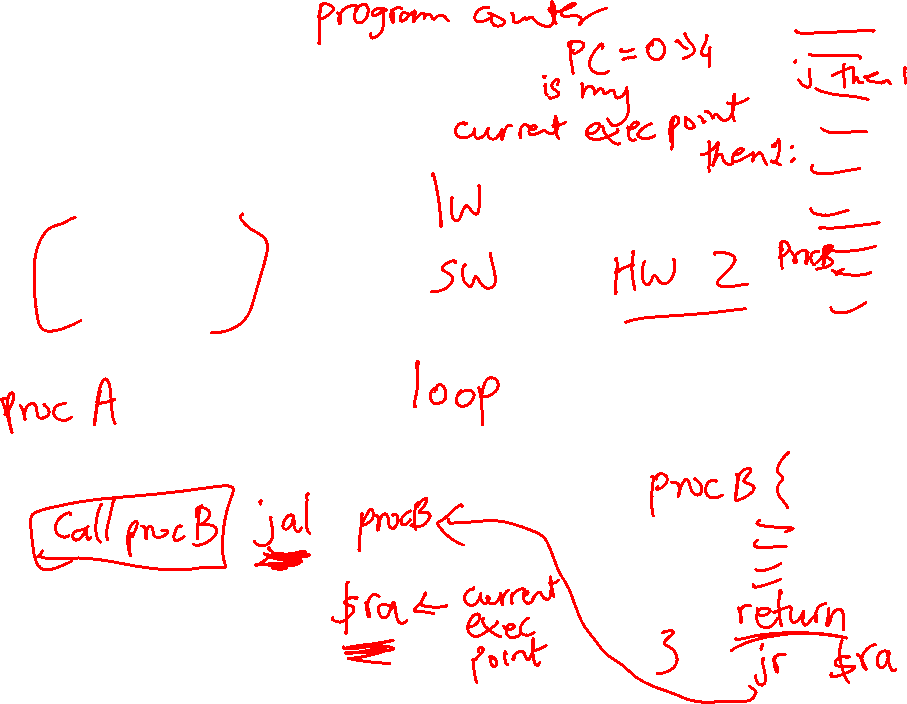 program counter
PC = 0x4
is my
current exec point
j then1
then1:
lw
sw
HW 2
procB
loop
proc A
procB {
Call procB
jal procB
$ra ← current exec point
return
}
jr $ra